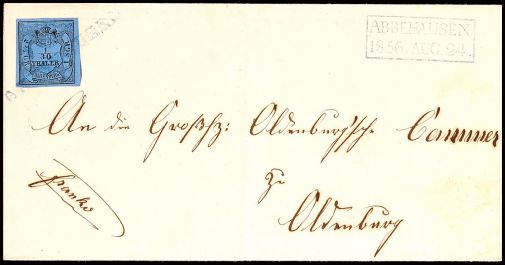 1/30
THALER
ABBEHAUSEN
1856. AUG. 24.
An die Großhz: Oldenburg'sche Cammer
zu
Oldenburg
franko